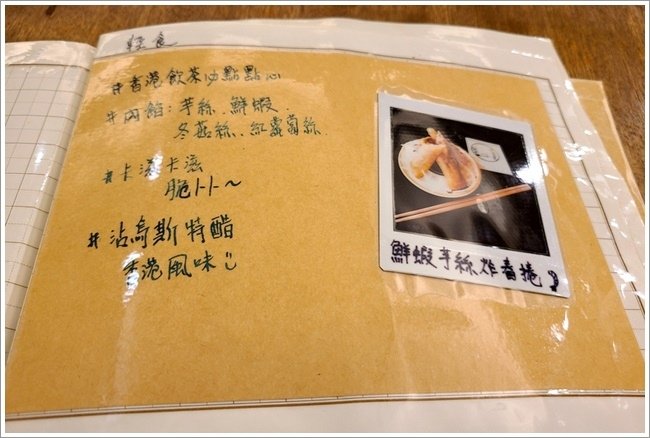 輕食
#香港飲茶ㄉ點點心
#內餡:芋絲、鮮蝦、
冬菇絲、紅蘿蔔絲
#卡滋卡滋
脆卜卜~
#沾烏斯特醋
香港風味
鮮蝦芋絲炸春捲